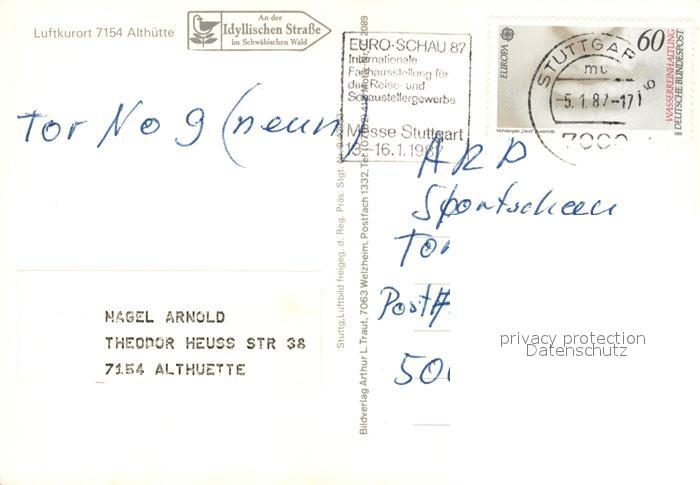 Luftkurort 7154 Althütte
An der
Idyllischen Straße
im Schwäbischen Wald
EURO-SCHAU 87
Internationale
Fachausstellung für
das Reise- und
Schaustellergewerbe
Messe Stuttgart
13.-16.1.1987
STUTTGAR
-5.1.87-17
7000
EUROPA
60
WASSERREINHALTUNG
DEUTSCHE BUNDESPOST
Tor No 9 (neun)
ARD
Sportschau
Tor
Postf
500
NAGEL ARNOLD
THEODOR HEUSS STR 38
7154 ALTHUETTE
Stuttg. Luftbild freigeg. d. Reg. Präs. Stgt.
Bildverlag Arthur L. Traut, 7063 Welzheim, Postfach 1332, Tel.
privacy protection
Datenschutz